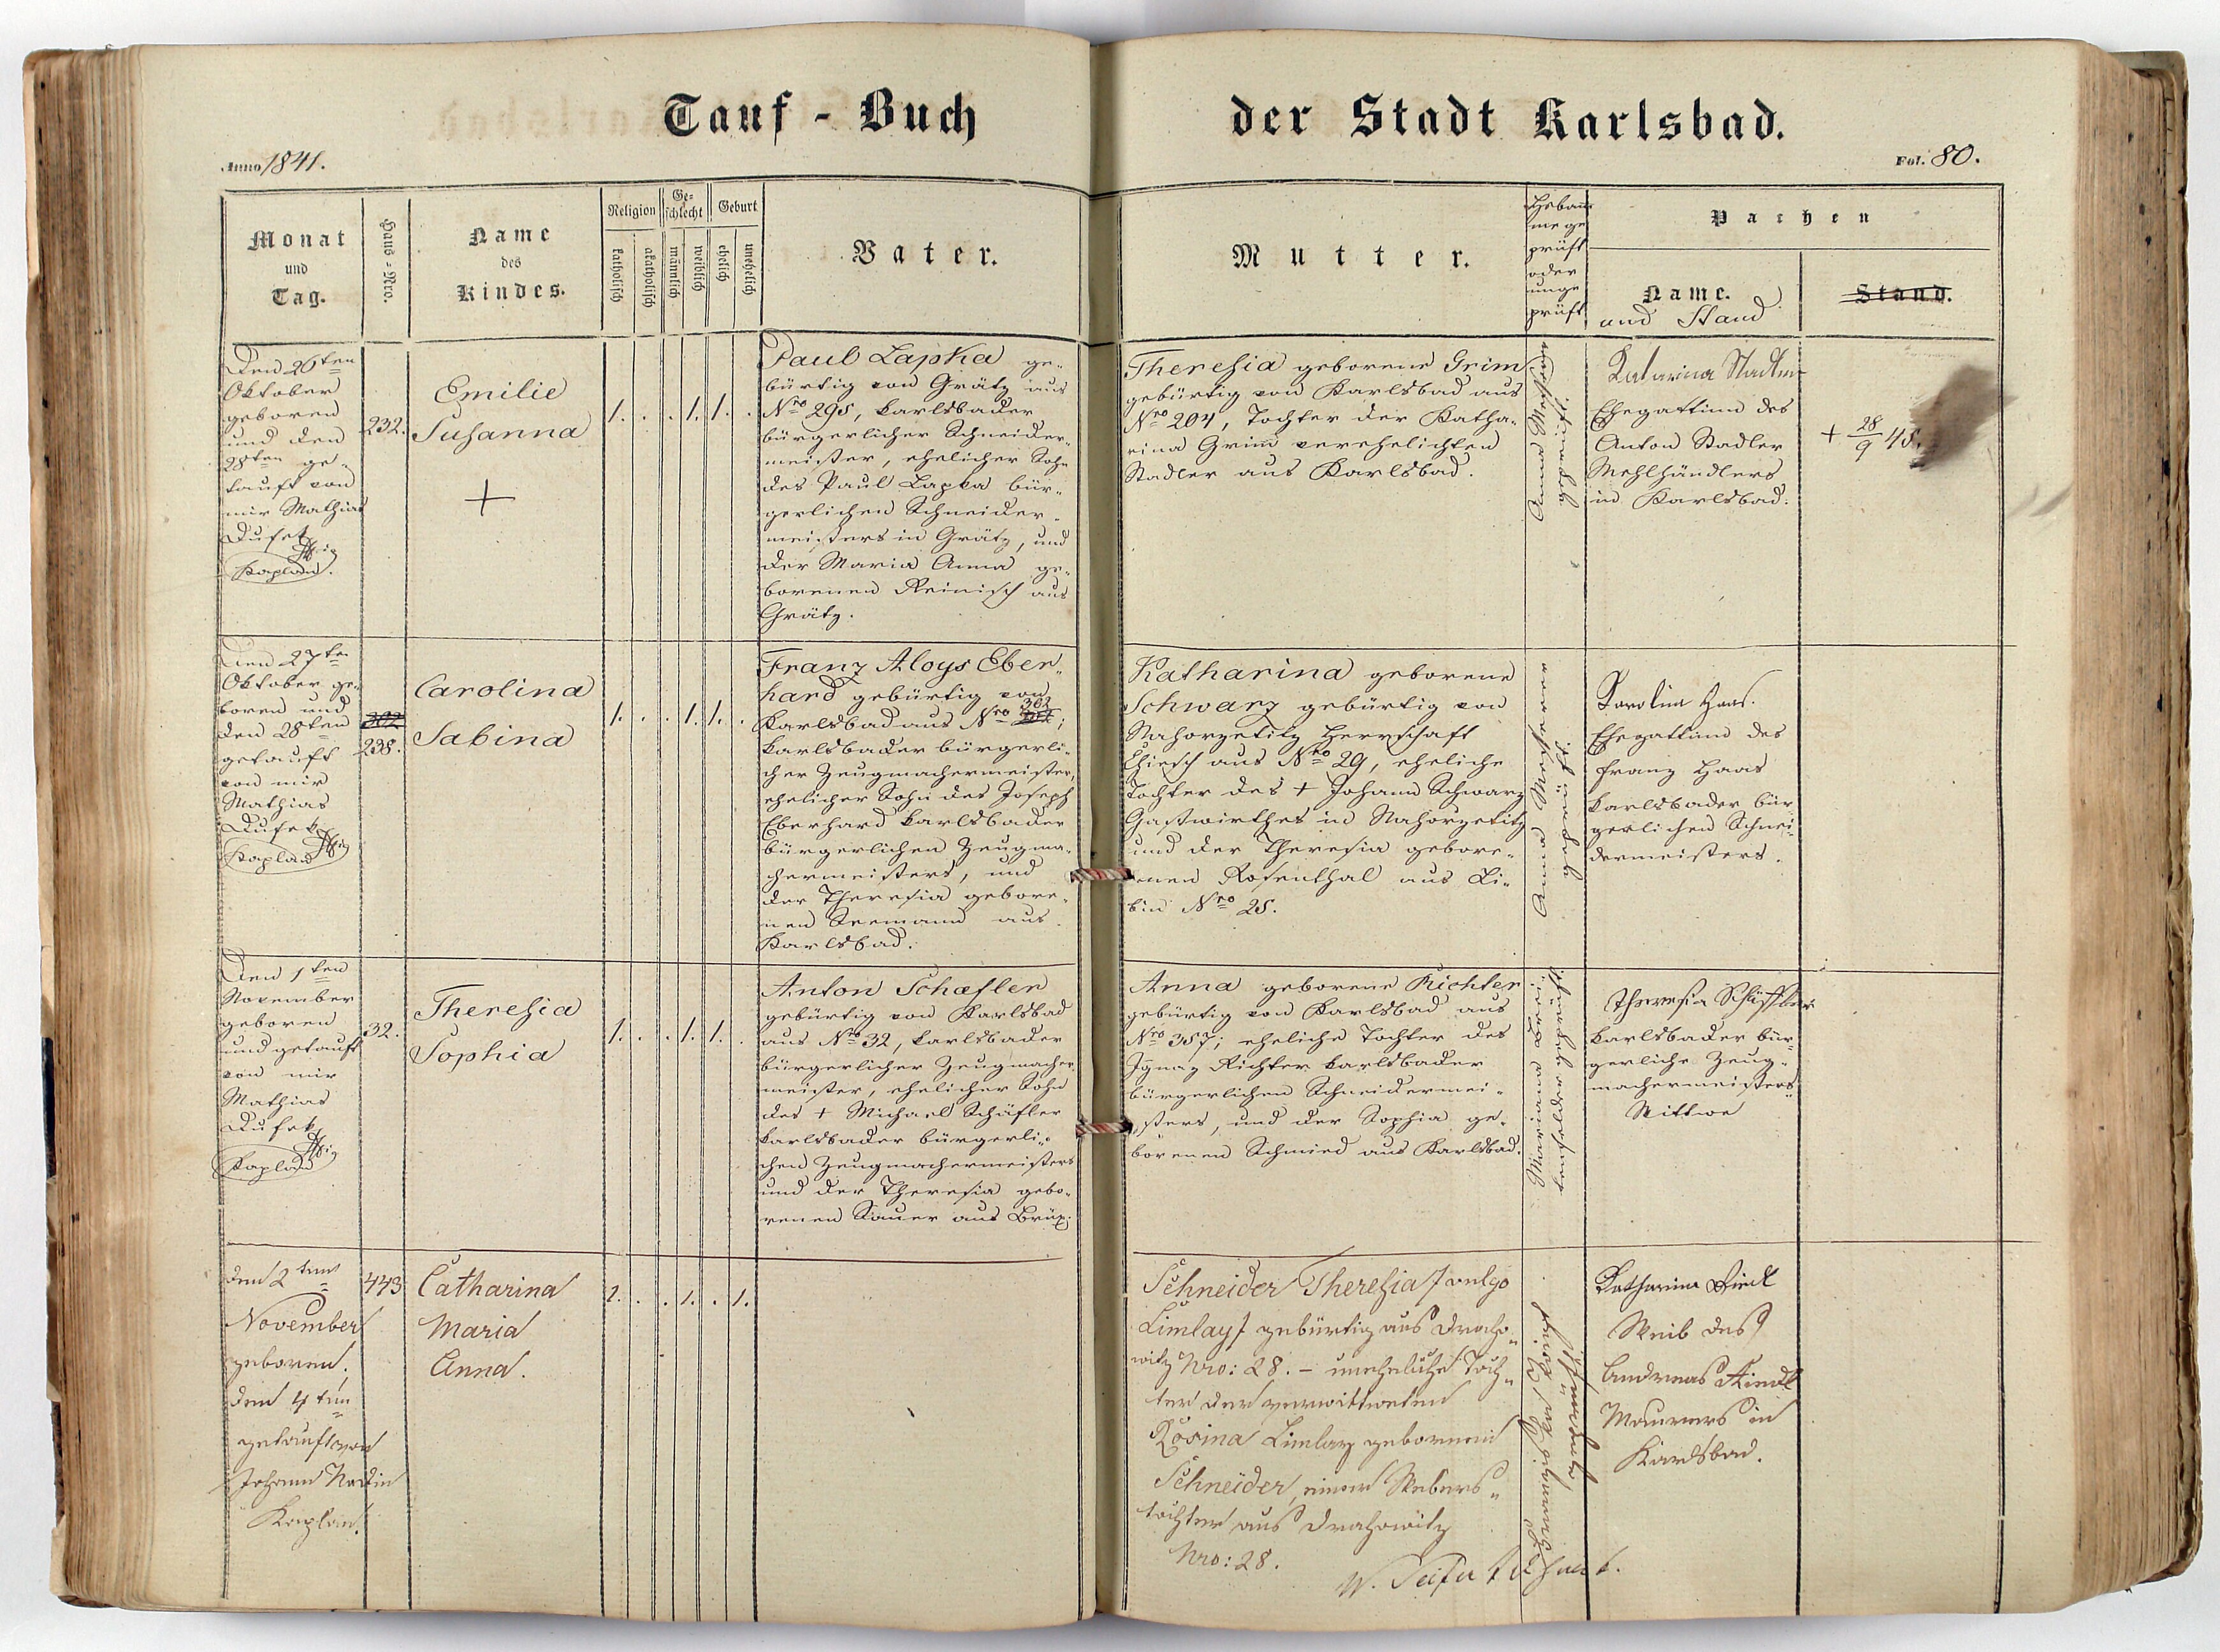 Tauf - Buch
der Stadt Karlsbad.
Anno 1841.
Fol. 80.
Monat
und
Tag.
Haus-Nro.
Name
des
Kindes.
Religion
katholisch
akatholisch
Ge-
schlecht
männlich
weiblich
Geburt
ehelich
unehelich
Vater.
Mutter.
Hebam
me ge
prüft
oder
unge
prüft
Pathen
Name.
und Stand
Stand.
Den 26ten
Oktober
geboren
und den
28ten ge-
tauft von
mir Mathias
Kaplan.
232.
Emilie
Susanna
+
1. . . 1. 1. .
Paul Lapka ge-
bürtig von Grätz aus
Nro 295, Karlsbader
bürgerlicher Schneider-
meister, ehelicher Sohn
des Paul Lapka bür-
gerlichen Schneider-
meisters in Grätz, und
der Maria Anna ge-
borenen Reinisch aus
Grätz.
Theresia geborene Grim
gebürtig von Karlsbad aus
Nro 204, Tochter der Katha-
rina Grim verehelichten
Stadler aus Karlsbad.
Anna
geprüft.
Katarina Stadler
Ehegattinn des
Anton Stadler
Mehlhändlers
in Karlsbad.
+ 28/9
Den 27ten
Oktober ge-
boren und
den 28ten
getauft
von mir
Mathias
Kaplan
302
238.
Carolina
Sabina
1. . . 1. 1. .
Franz Aloys Eber-
hard gebürtig von
Karlsbad aus Nro 302,
Karlsbader bürgerli-
cher Zeugmachermeister,
ehelicher Sohn des Joseph
Eberhard Karlsbader
bürgerlichen Zeugma-
chermeisters, und
der Theresia gebore-
nen Seemann aus
Karlsbad.
Katharina geborene
Schwarz gebürtig von
Nahorzetitz Herrschaft
Chiesch aus Nro 29, eheliche
Tochter des + Johann Schwarz
Gastwirthes in Nahorzetitz
und der Theresia gebore-
nen Rosenthal aus Li-
bin Nro 25.
Anna
geprüft.
Karolina Haas.
Ehegattinn des
Franz Haas
Karlsbader bür
gerlichen Schnei-
dermeisters.
Den 1ten
November
geboren
und getauft
von mir
Mathias
Kaplan
32.
Theresia
Sophia
1. . . 1. 1. .
Anton Schäfler
gebürtig von Karlsbad
aus Nro 32, Karlsbader
bürgerlicher Zeugmacher
meister, ehelicher Sohn
des + Michael Schäfler
Karlsbader bürgerli-
chen Zeugmachermeisters
und der Theresia gebo-
renen Bauer aus Brüx.
Anna geborene Richter
gebürtig von Karlsbad aus
Nro 357; eheliche Tochter des
Ignaz Richter Karlsbader
bürgerlichen Schneidermei-
sters, und der Sophia ge-
borenen Schmied aus Karlsbad.
Mariana Brei
tenfelder geprüft
Theresia Schäffler
Karlsbader bür-
gerliche Zeug-
machermeisters
Wittwe
Den 2ten
November
geboren,
den 4ten
getauft von
Johann
Kaplan.
443
Catharina
Maria
Anna.
1. . . 1. . 1.
Schneider Theresia / vulgo
Limlay / gebürtig aus Draho-
witz Nro: 28. – uneheliche Toch-
ter der verwittweten
Rosina Limlay gebornen
Schneider, einer Webers-
tochter aus Drahowitz
Nro: 28.
geprüft
Katharina Riedl
Weib des
Andreas Riedl
Maurers in
Karlsbad.